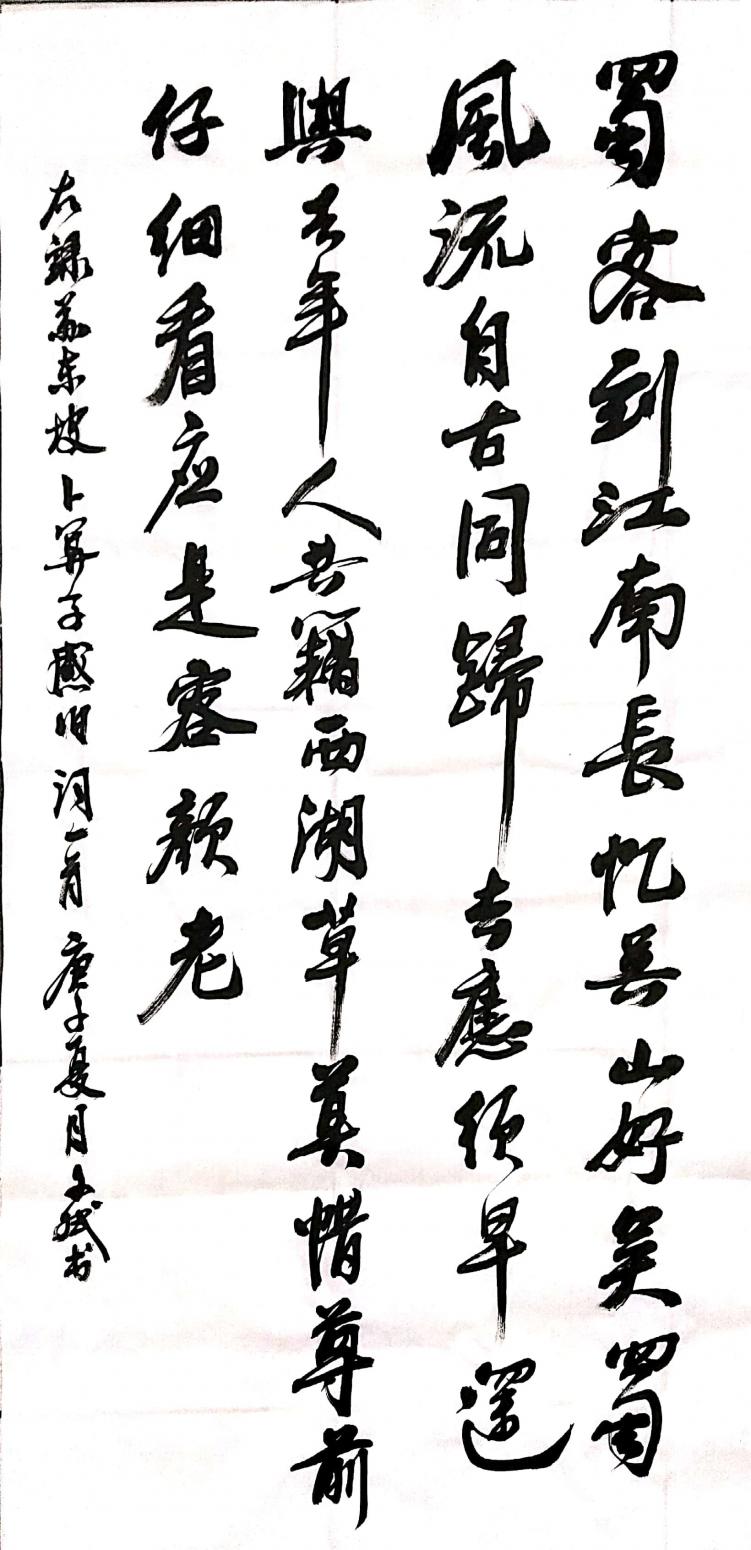 蜀客到江南長憶吳山好吳蜀
風流自古同歸去應須早還
與去年人共藉西湖草莫惜尊前
仔細看应是容顏老
右錄蘇東坡卜算子感旧詞一首 庚子夏月 書